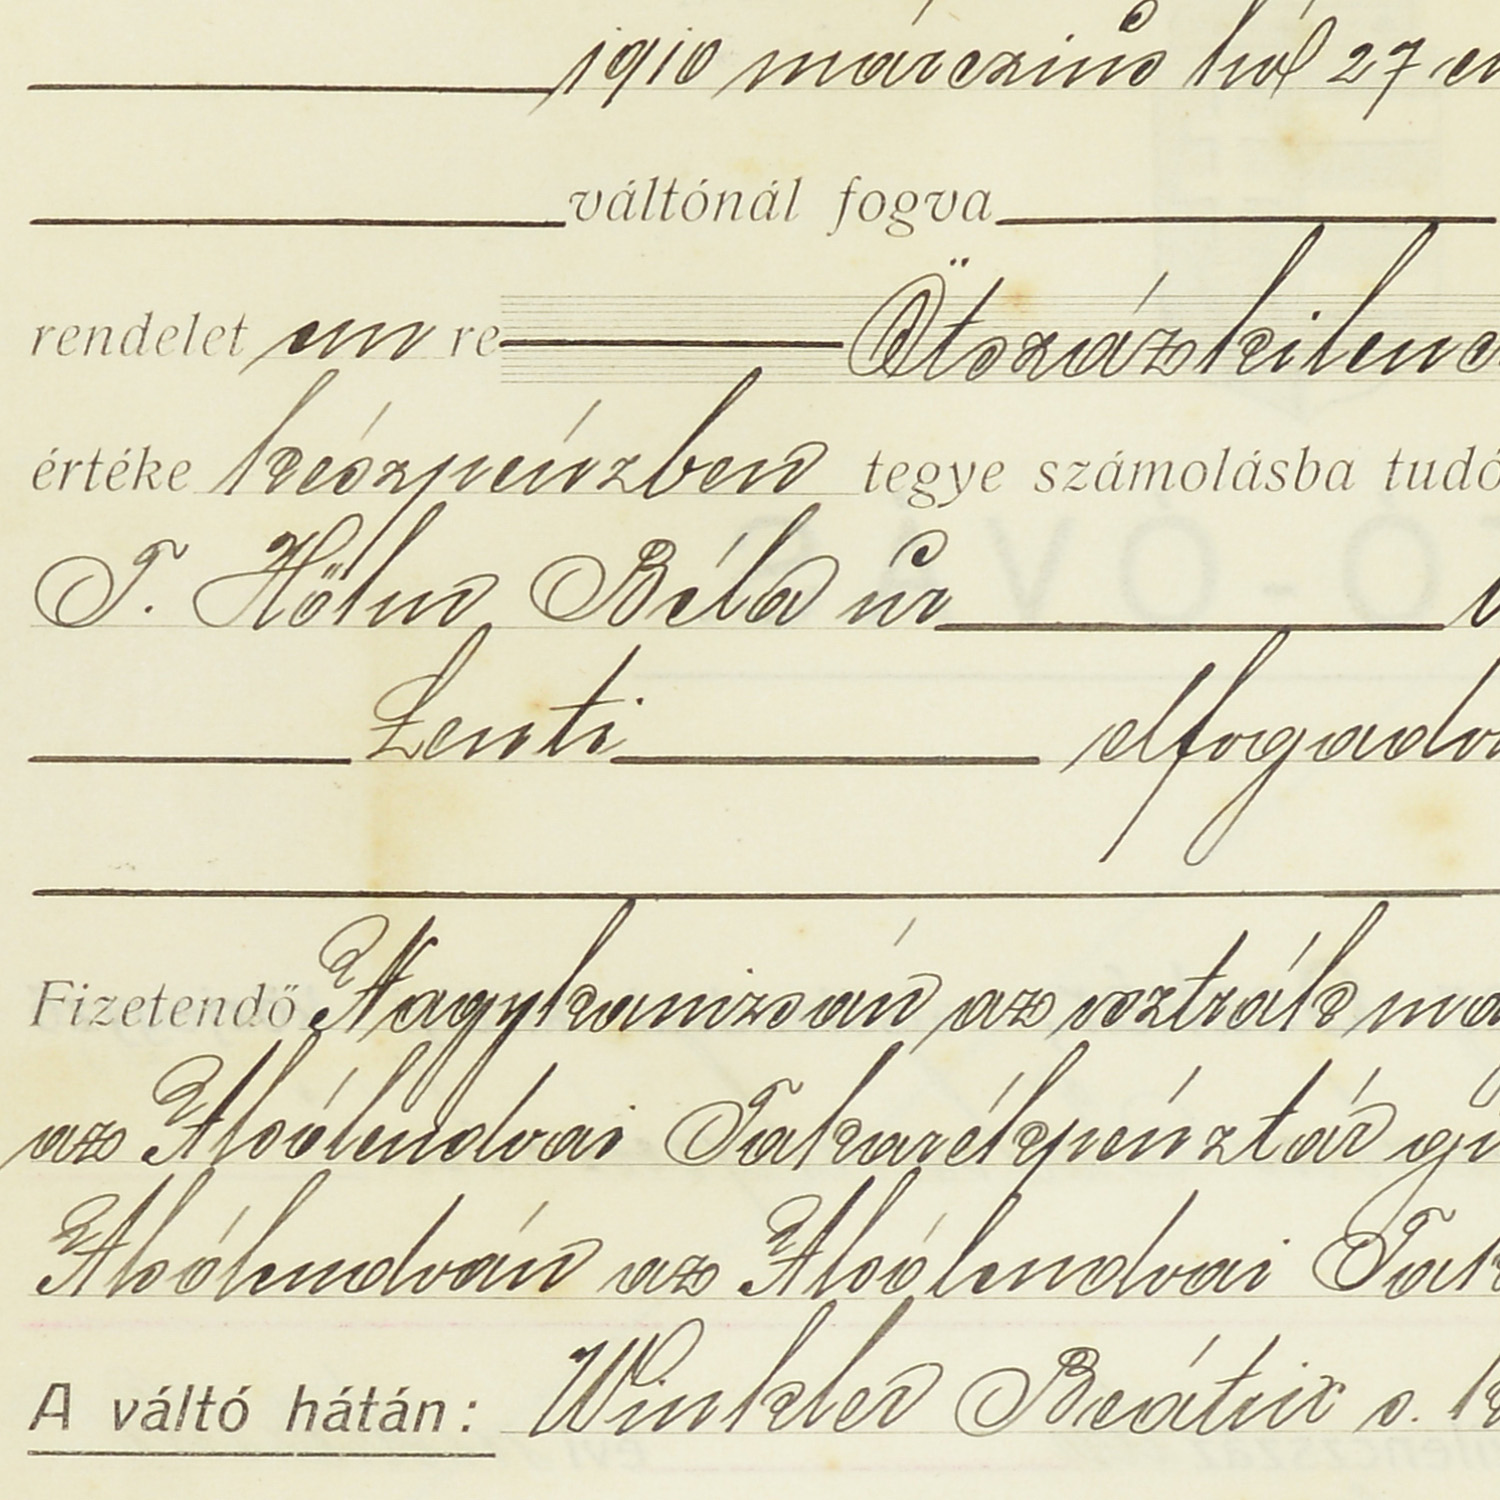 1910 márczius hó 27 en
váltónál fogva
rendelet em re Ötszázkilenc
értéke készpénzben tegye számolásba tudó
T. Hőhn Béla úr
Lenti elfogado
Fizetendő Nagykanizsán az osztrák ma
az Alsólendvai Takarékpénztár
Alsólendván az Alsólendvai Tak
A váltó hátán: Winkler Beátrix s. k